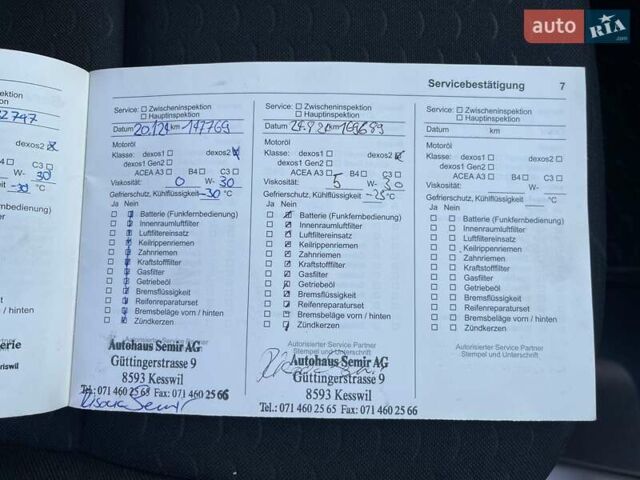 auto RIA .com
Servicebestätigung 7
2747
dexos2
B4 C3
W- 30
-30 °C
nbedienung)
/ hinten
erie
riswil
Service: Zwischeninspektion
Hauptinspektion
Datum km
Motoröl
Klasse: dexos1 dexos2
dexos1 Gen2
ACEA A3 B4 C3
Viskosität: 0 W- 30
Gefrierschutz, Kühlflüssigkeit -30 °C
Ja Nein
Batterie (Funkfernbedienung)
Innenraumluftfilter
Luftfiltereinsatz
Keilrippenriemen
Zahnriemen
Kraftstofffilter
Gasfilter
Getriebeöl
Bremsflüssigkeit
Reifenreparaturset
Bremsbeläge vorn / hinten
Zündkerzen
Autohaus Semir AG
Güttingerstrasse 9
8593 Kesswil
Tel.: 071 460 25 65 Fax: 071 460 25 66
Service: Zwischeninspektion
Hauptinspektion
Datum km 169689
Motoröl
Klasse: dexos1 dexos2
dexos1 Gen2
ACEA A3 B4 C3
Viskosität: 5 W- 30
Gefrierschutz, Kühlflüssigkeit -25 °C
Ja Nein
Batterie (Funkfernbedienung)
Innenraumluftfilter
Luftfiltereinsatz
Keilrippenriemen
Zahnriemen
Kraftstofffilter
Gasfilter
Getriebeöl
Bremsflüssigkeit
Reifenreparaturset
Bremsbeläge vorn / hinten
Zündkerzen
Autorisierter Service Partner
Stempel und Unterschrift
Autohaus Semir AG
Güttingerstrasse 9
8593 Kesswil
Tel.: 071 460 25 65 Fax: 071 460 25 66
Service: Zwischeninspektion
Hauptinspektion
Datum km
Motoröl
Klasse: dexos1 dexos2
dexos1 Gen2
ACEA A3 B4 C3
Viskosität: W-
Gefrierschutz, Kühlflüssigkeit °C
Ja Nein
Batterie (Funkfernbedienung)
Innenraumluftfilter
Luftfiltereinsatz
Keilrippenriemen
Zahnriemen
Kraftstofffilter
Gasfilter
Getriebeöl
Bremsflüssigkeit
Reifenreparaturset
Bremsbeläge vorn / hinten
Zündkerzen
Autorisierter Service Partner
Stempel und Unterschrift